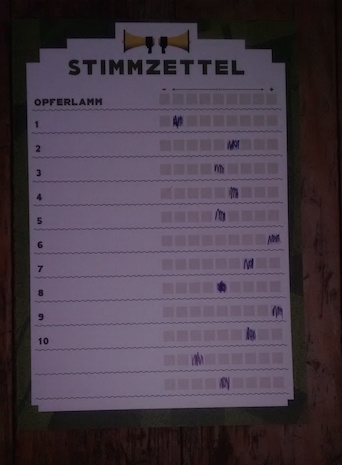 STIMMZETTEL
OPFERLAMM
1
2
3
4
5
6
7
8
9
10